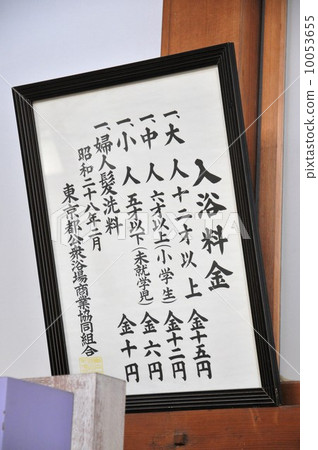 入浴料金
一、大人 十二才以上 金十五円
一、中人 六才以上(小学生) 金十二円
一、小人 五才以下(未就学児) 金六円
一、婦人髪洗料 金十円
昭和二十八年一月
東京都公衆浴場商業協同組合
10053655